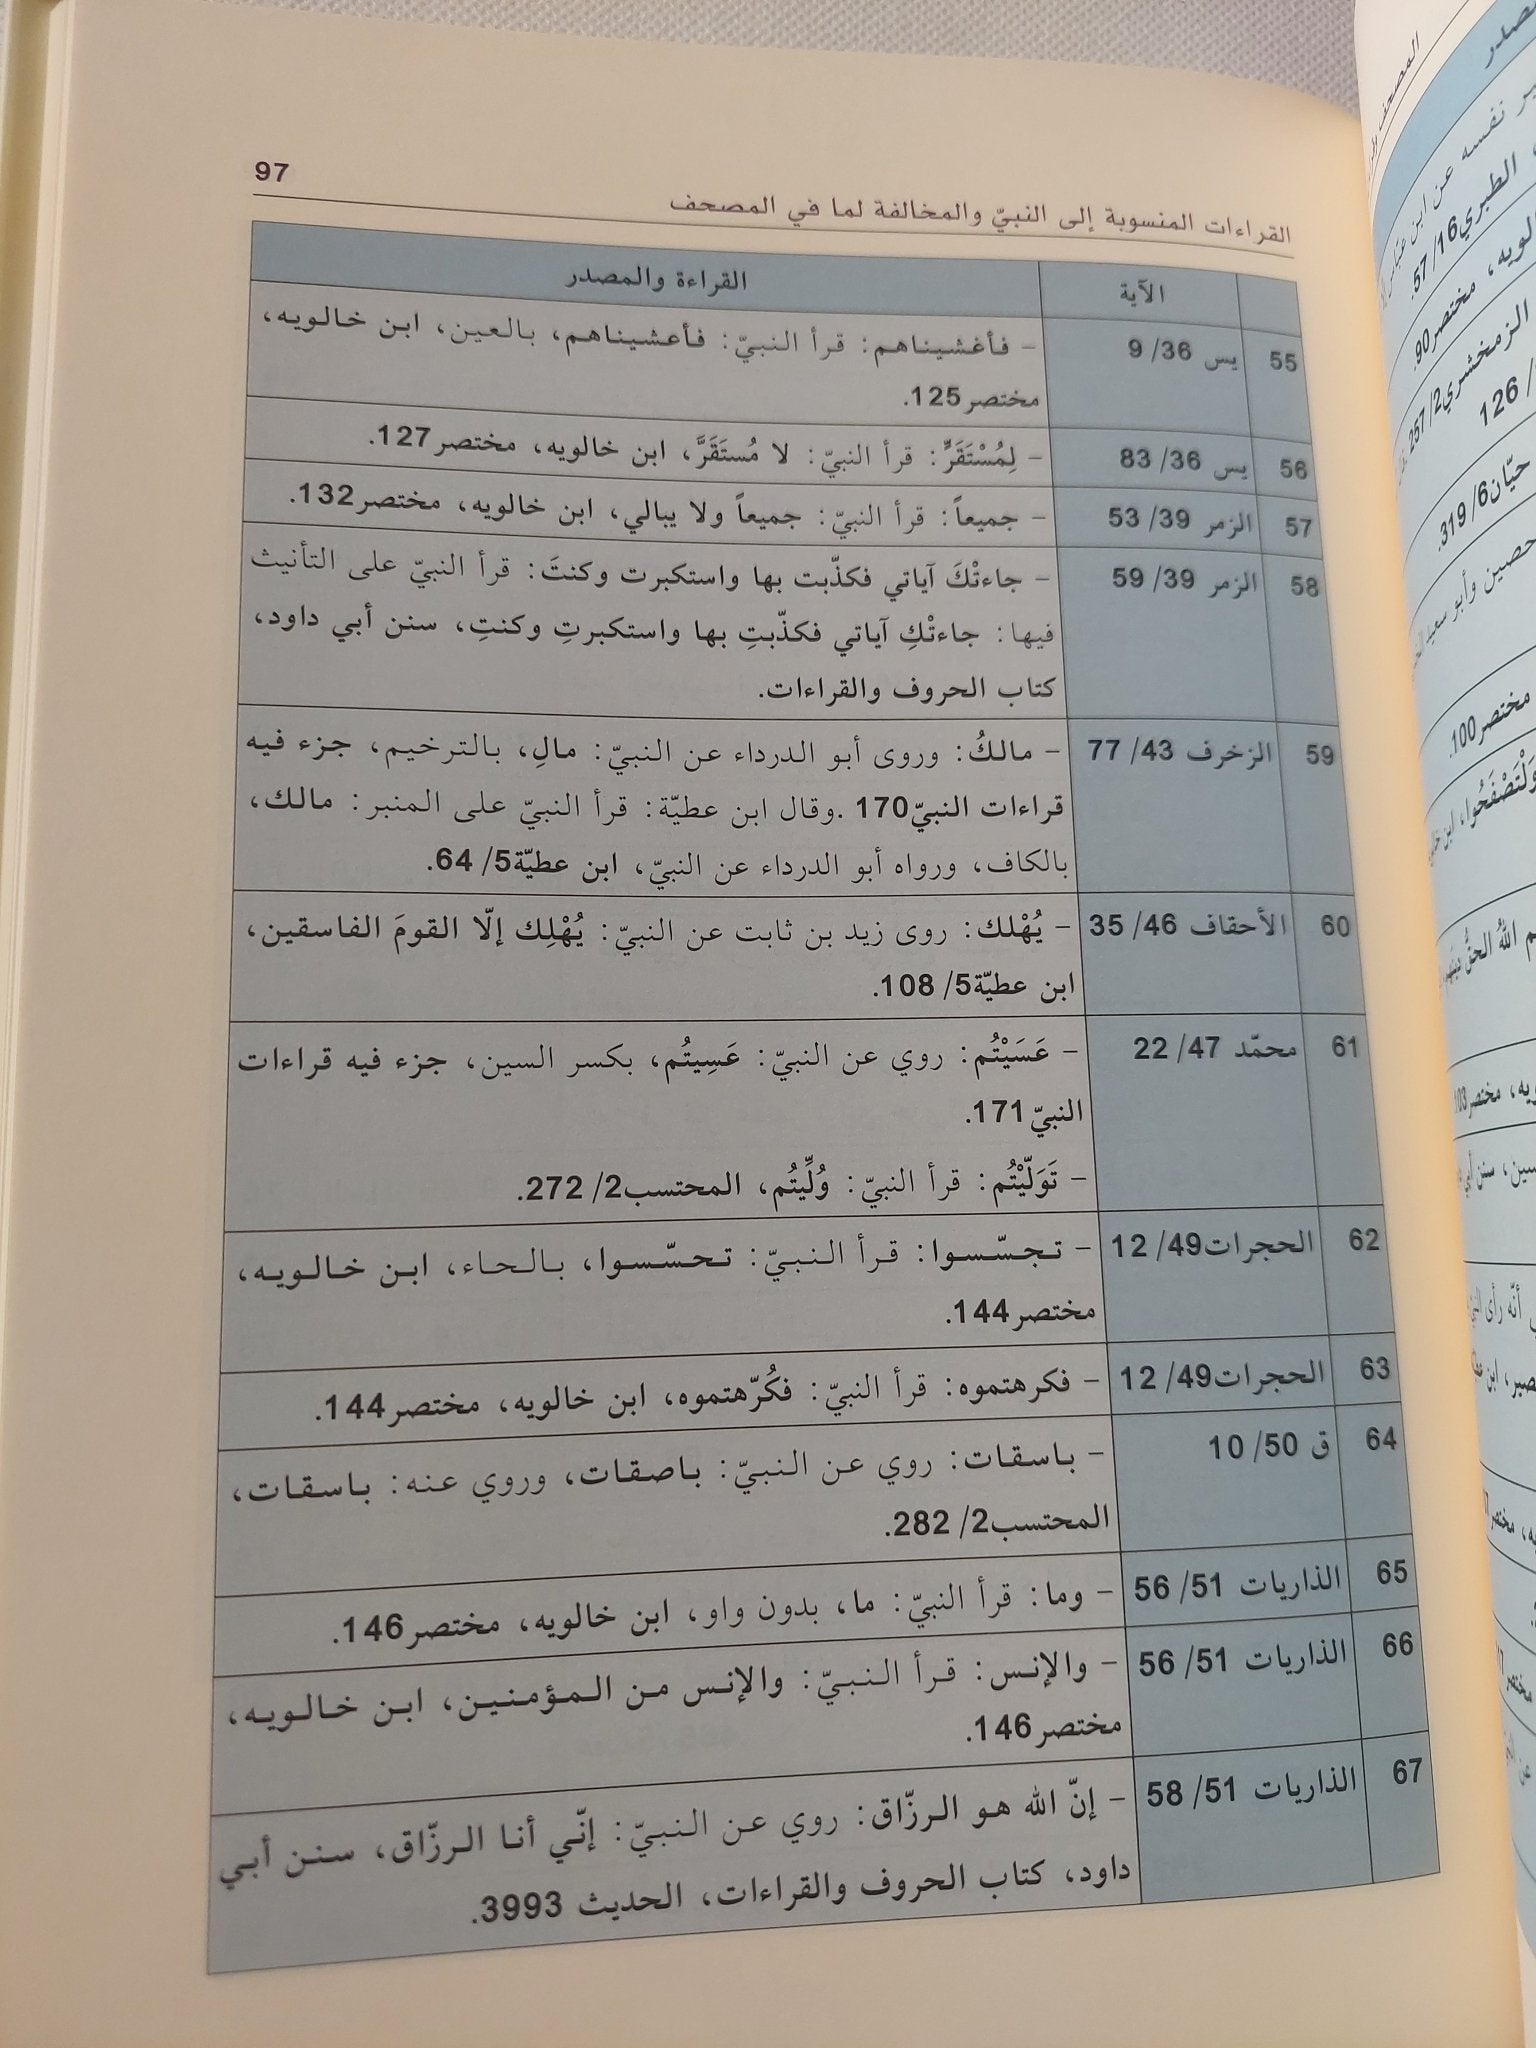 97
القراءات المنسوبة إلى النبيّ والمخالفة لما في المصحف
الآية القراءة والمصدر
55 يس 36/ 9 - فأغشيناهم: قرأ النبيّ: فأعشيناهم، بالعين، ابن خالويه،
مختصر125.
56 يس 36/ 83 - لِمُسْتَقَرٍّ: قرأ النبيّ: لا مُستَقَرَّ، ابن خالويه، مختصر127.
57 الزمر 39/ 53 - جميعاً: قرأ النبيّ: جميعاً ولا يبالي، ابن خالويه، مختصر132.
58 الزمر 39/ 59 - جاءتْكَ آياتي فكذّبت بها واستكبرت وكنتَ: قرأ النبيّ على التأنيث
فيها: جاءتْكِ آياتي فكذّبتِ بها واستكبرتِ وكنتِ، سنن أبي داود،
كتاب الحروف والقراءات.
59 الزخرف 43/ 77 - مالكُ: وروى أبو الدرداء عن النبيّ: مالِ، بالترخيم، جزء فيه
قراءات النبيّ170 .وقال ابن عطيّة: قرأ النبيّ على المنبر: مالك،
بالكاف، ورواه أبو الدرداء عن النبيّ، ابن عطيّة5/ 64.
60 الأحقاف 46/ 35 - يُهْلك: روى زيد بن ثابت عن النبيّ: يُهْلِك إلّا القومَ الفاسقين،
ابن عطيّة5/ 108.
61 محمّد 47/ 22 - عَسَيْتُم: روي عن النبيّ: عَسِيتُم، بكسر السين، جزء فيه قراءات
النبيّ171.
- تَوَلّيْتُم: قرأ النبيّ: وُلِّيتُم، المحتسب2/ 272.
62 الحجرات49/ 12 - تجسّسوا: قرأ النبيّ: تحسّسوا، بالحاء، ابن خالويه،
مختصر144.
63 الحجرات49/ 12 - فكرهتموه: قرأ النبيّ: فكُرّهتموه، ابن خالويه، مختصر144.
64 ق 50/ 10 - باسقات: روي عن النبيّ: باصقات، وروي عنه: باسقات،
المحتسب2/ 282.
65 الذاريات 51/ 56 - وما: قرأ النبيّ: ما، بدون واو، ابن خالويه، مختصر146.
66 الذاريات 51/ 56 - والإنس: قرأ النبيّ: والإنس من المؤمنين، ابن خالويه،
مختصر146.
67 الذاريات 51/ 58 - إنّ الله هو الرزّاق: روي عن النبيّ: إنّي أنا الرزّاق، سنن أبي
داود، كتاب الحروف والقراءات، الحديث 3993.
نفسه عن ابن عبّاس
الطبري16/ 57.
مختصر90.
الزمخشري2/ 257
126
حيّان6/ 319.
حصين وأبو سعيد
مختصر100.
وَلْتَصْفَحُوا، ابن
اللهُ الحقُّ
مختصر103
سنن أبي
أنّه رأى